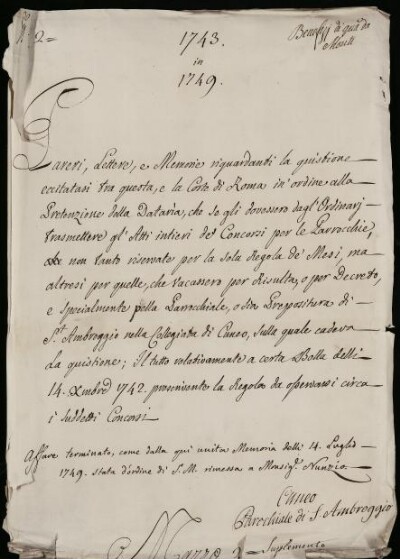 N. 2=
Beneficj di qua da Monti
1743.
in
1749.
Pareri, Lettere, e Memorie riguardanti la quistione
eccitatasi tra questa, e la Corte di Roma in ordine alla
Pretenzione della Dataria, che se gli dovessero dagl'Ordinarj
trasmettere gl'Atti intieri de' Concorsi per le Parrocchie,
non tanto riservate per la sola Regola de' Mesi, ma
altresi per quelle, che vacassero per Risulta, o per Decreto,
e specialmente pella Parrocchiale, o sia Prepositura di
St. Ambroggio nella Collegiata di Cuneo, sulla quale cadeva
la quistione; Il tutto relativamente a certa Bolla delli
14. Xmbre 1742. prescrivente la Regola da osservarsi circa
i suddetti Concorsi
Affare terminato, come dalla qui unita Memoria delli 14. Luglio
1749. stata d'ordine di S. M. rimessa a Monsigr. Nunzio
Cuneo
Parochiale di S. Ambroggio
Mazzo 2
Suplemento